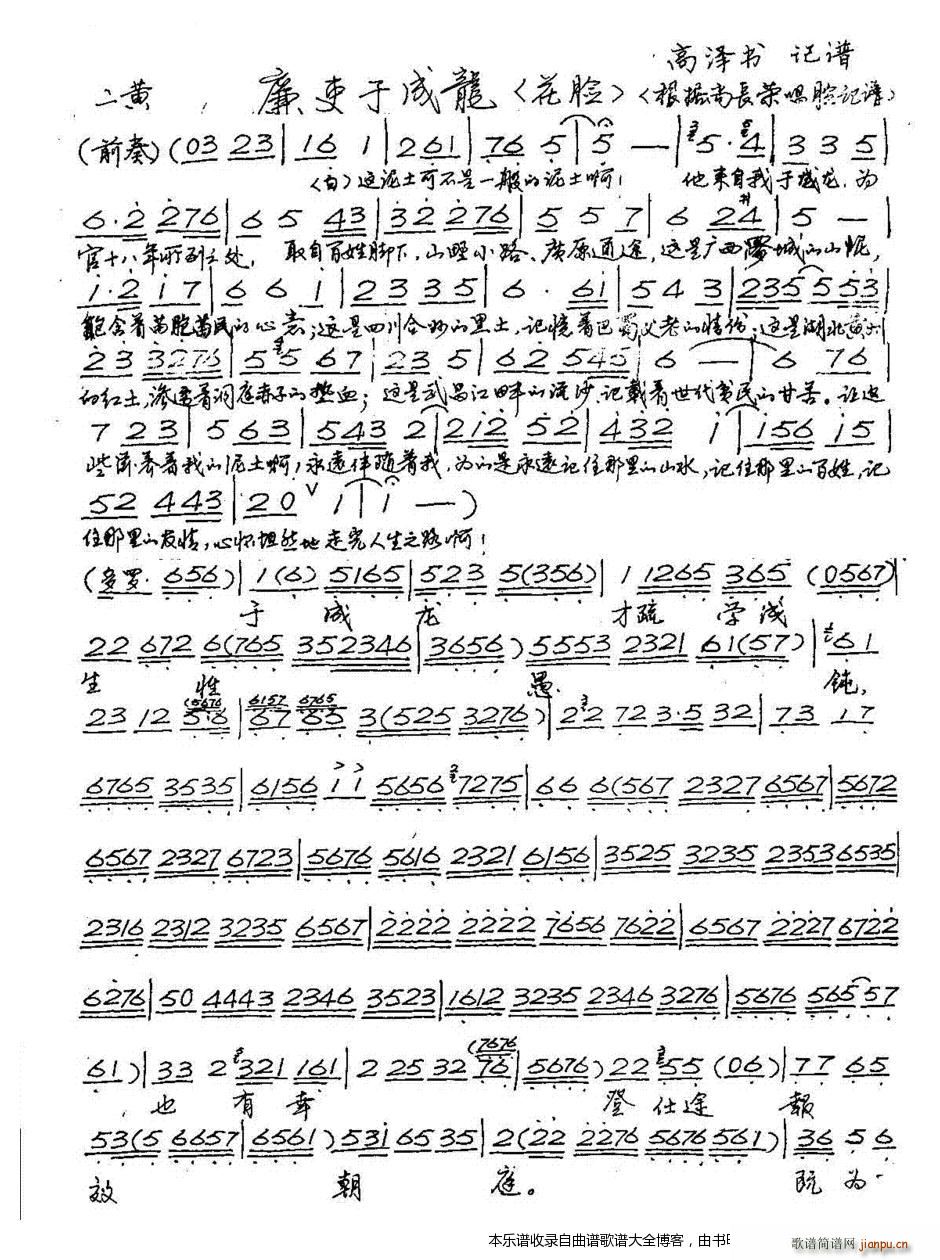 高泽书 记谱
二黄 廉吏于成龍〈花脸〉〈根据尚長荣唱腔记谱〉
(前奏)(03 23|16 1|261|76 5|5 —|5·4|3 3 5|
〈白〉这泥土可不是一般的泥土啊! 他来自我于成龙,为
6·2 276|6 5 43|32 276|5 5 7|6 24|5 —|
官十八年所到之处,取自百姓脚下,山野小路、廣原通途,这是广西罗城的山泥,
1·2 17|6 6 1|23 35|6· 61|54 3|235 553|
飽含着苗胞苗民的心意;这是四川合州的黑土,记憶着巴蜀父老的情份;这是湖北黄州
23 3276|55 67|23 5|62 545|6 —|6 76|
的红土,渗透着洞庭赤子的热血;这是武昌江畔的流沙,记載着世代贫民的甘苦。让这
7 23|5 63|543 2|212 52|432 1|156 15|
些滋养着我的泥土啊,永遠伴随着我,为的是永遠记住那里的山水,记住那里的百姓,记
52 443|20 ∨ 1|1 —)
住那里的友情,心怀坦然地走完人生之路啊!
(多罗· 656)|1(6) 5165|523 5(356)|1 1265 365 (0567)|
于 成 龙 才疏 学浅
22 672 6(765 352346|3656) 5553 2321 61(57)|61
生 性 愚 钝,
23 12 56|67 65 3(525 3276)|22 72 3·5 32|73 17
6765 3535|6156 11 5656 7275|66 6(567 2327 6567|5672
6567 2327 6723|5676 5616 2321 6156|3525 3235 2353 6535|
2316 2312 3235 6567|2222 2222 7656 7622|6567 2227 6722
6276|50 4443 2346 3523|1612 3235 2346 3276|5676 565 57
61)|33 2 321 161|2 25 32 76|5676) 22 55 (06)|77 65
也 有 幸 登 仕 途 報
53(5 6657|6561) 531 65 35|2(22 2276 5676 561)|36 5 6
效 朝 庭。 既 为
本乐谱收录自曲谱歌谱大全博客，由书
歌谱简谱网
jianpu.cn